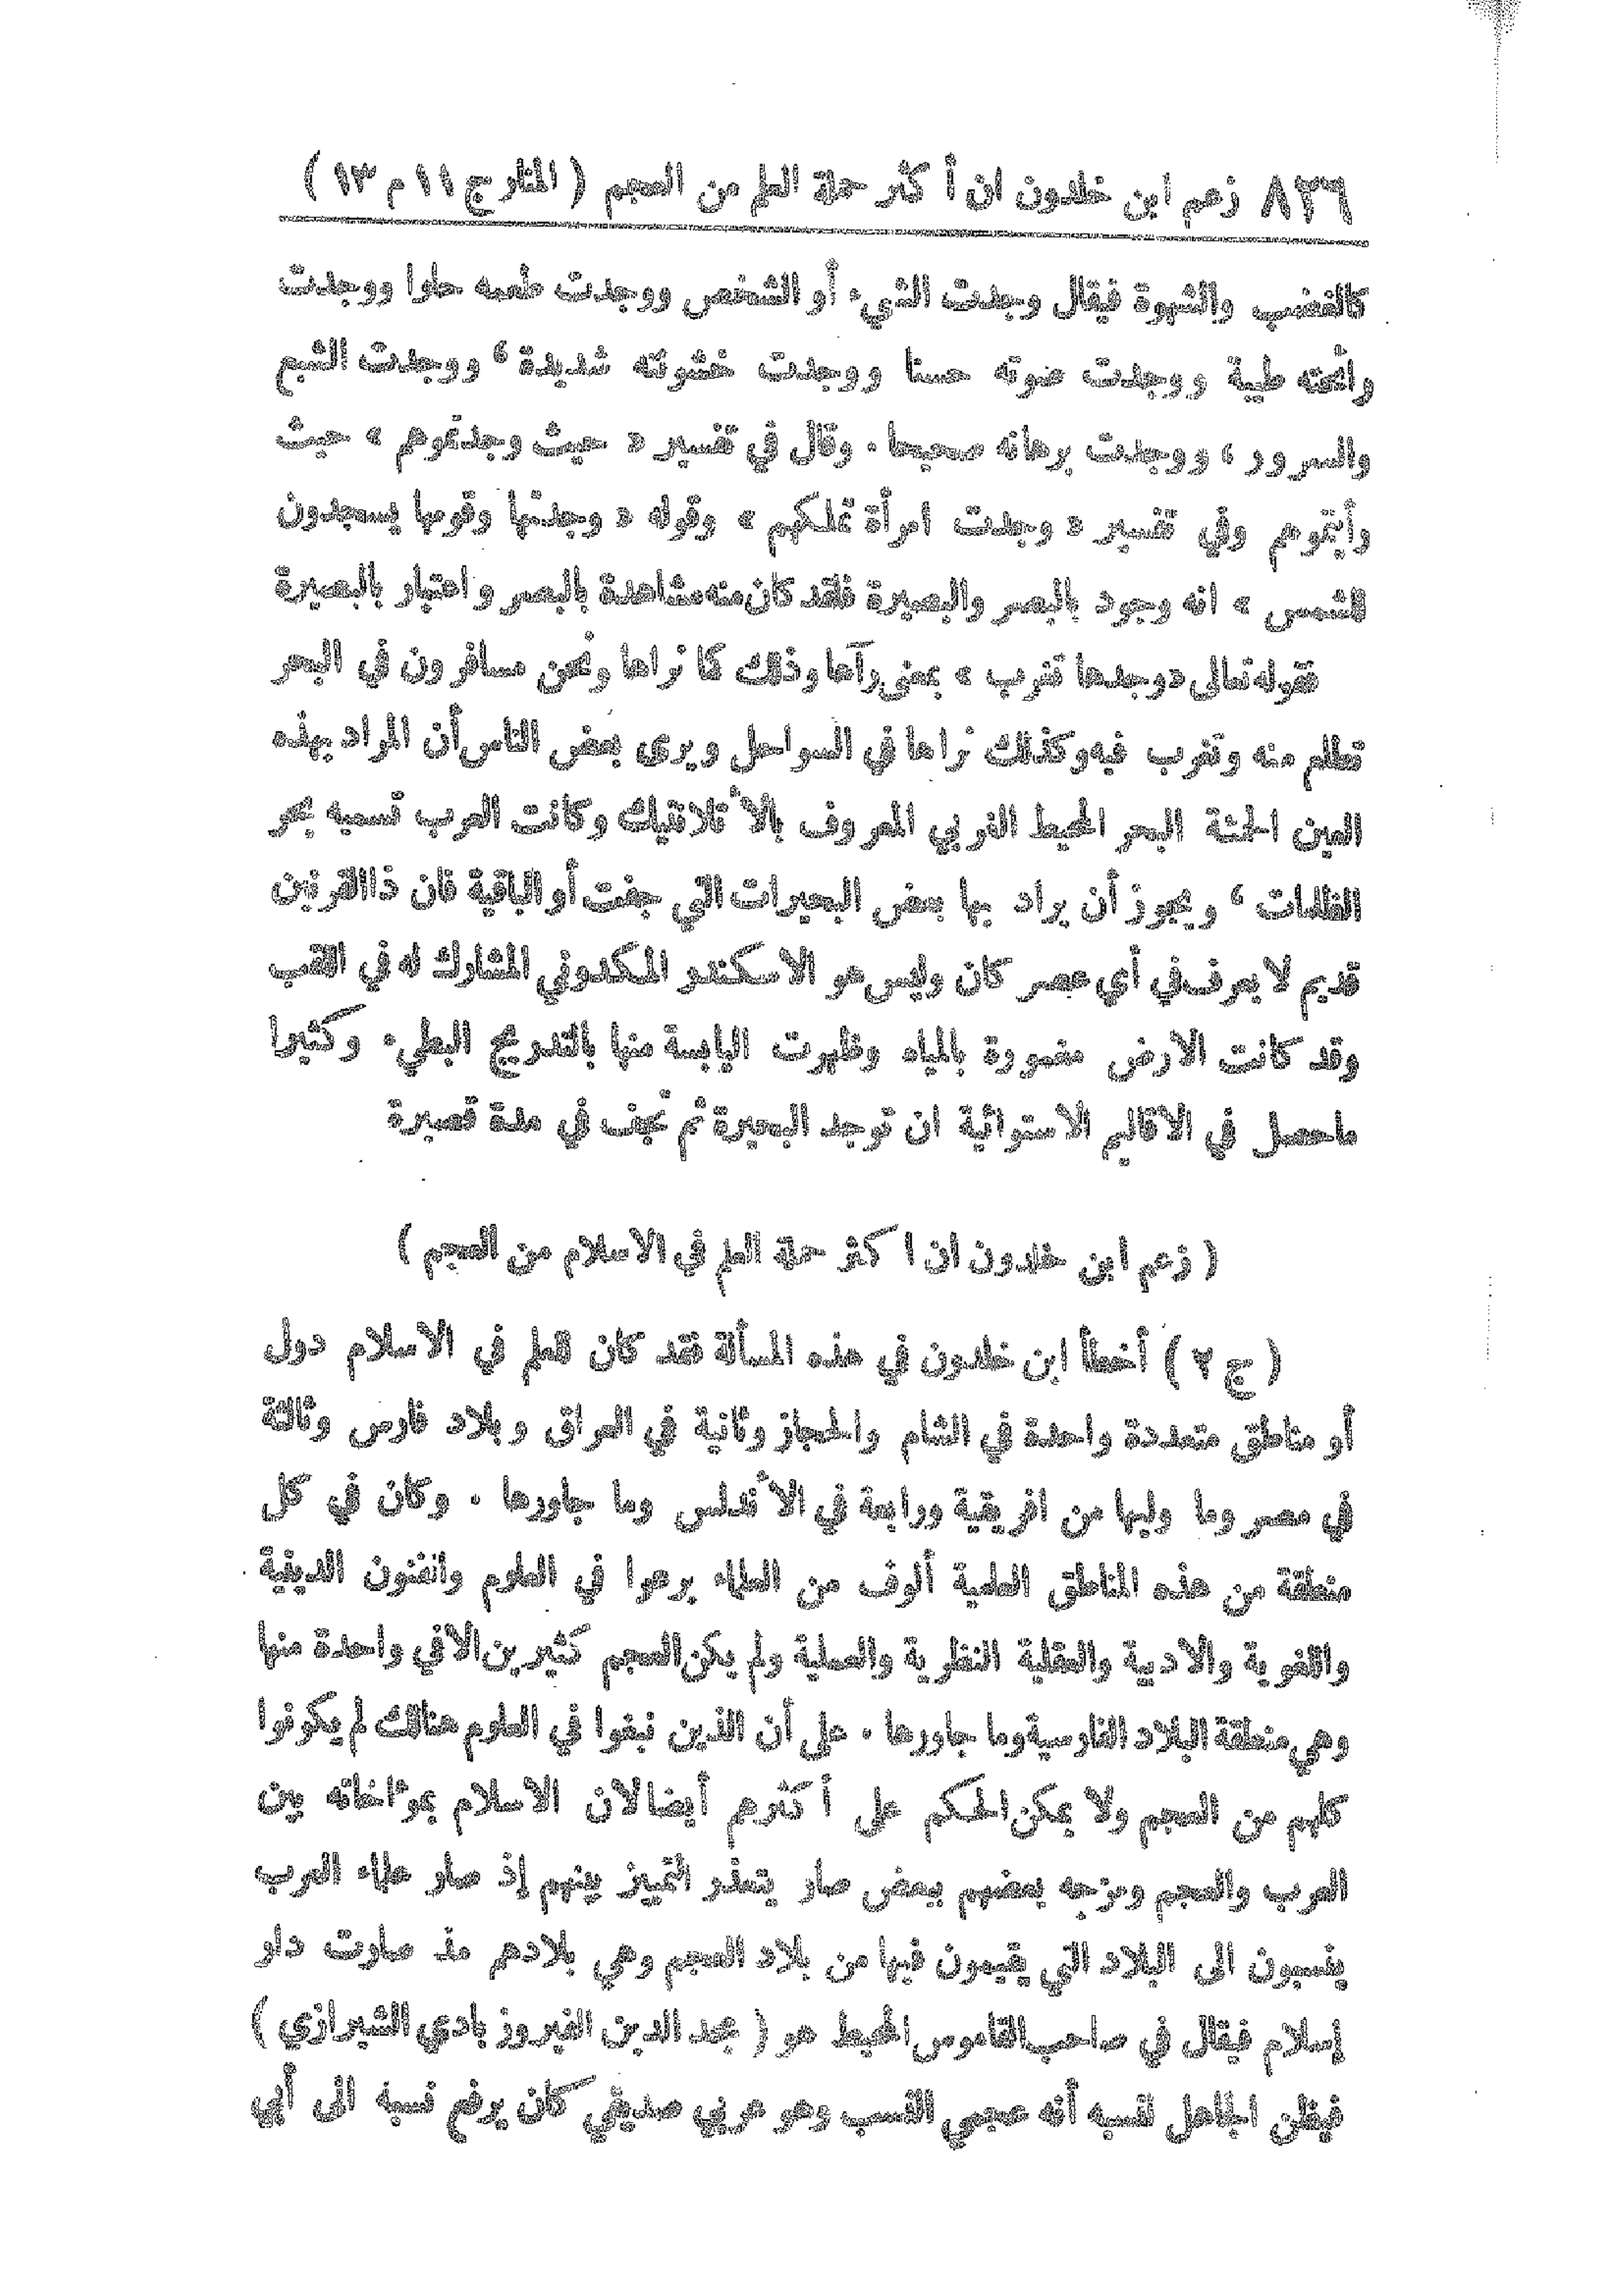 ٨٢٦ زعم ابن خلدون ان أكثر حملة العلم من العجم ( المنار ج ١١ م ١٣ )
كالغضب والشهوة فيقال وجدت الشيء أو الشخص ووجدت طعمه حلوا ووجدت
رائحته طيبة ووجدت صوته حسنا ووجدت خشونته شديدة ، ووجدت الشبع
والسرور ، ووجدت برهانه صحيحا . وقال في تفسير « حيث وجدتموهم » حيث
رأيتموهم وفي تفسير « وجدت امرأة تملكهم » وقوله « وجدتها وقومها يسجدون
للشمس » انه وجود بالبصر والبصيرة فلقد كان منه مشاهدة بالبصر واعتبار بالبصيرة
فقوله تعالى « وجدها تغرب » بمعنى رآها وذلك كما نراها ونحن مسافرون في البحر
تطلع منه وتغرب فيه وكذلك نراها في السواحل ويرى بعض الناس أن المراد بهذه
العين الحمئة البحر المحيط الغربي المعروف بالأتلانتيك وكانت العرب تسميه بحر
الظلمات ، ويجوز أن يراد بها بعض البحيرات التي جفت أو الباقية فان ذا القرنين
قديم لا يعرف في أي عصر كان وليس هو الاسكندر المكدوني المشارك له في اللقب
وقد كانت الارض مغمورة بالمياه وظهرت اليابسة منها بالتدريج البطيء وكثيرا
ما حصل في الاقاليم الاستوائية ان توجد البحيرة ثم تجف في مدة قصيرة
( زعم ابن خلدون ان اكثر حملة العلم في الاسلام من العجم )
( ج ٢ ) أخطأ ابن خلدون في هذه المسألة فقد كان للعلم في الاسلام دول
أو مناطق متعددة واحدة في الشام والحجاز وثانية في العراق وبلاد فارس وثالثة
في مصر وما وليها من افريقية ورابعة في الأندلس وما جاورها . وكان في كل
منطقة من هذه المناطق العلمية ألوف من العلماء برعوا في العلوم والفنون الدينية
واللغوية والادبية والعقلية النظرية والعملية ولم يكن العجم كثيرين الا في واحدة منها
وهي منطقة البلاد الفارسية وما جاورها . على أن الذين نبغوا في العلوم هنالك لم يكونوا
كلهم من العجم ولا يمكن الحكم على أكثرهم أيضا لان الاسلام بمؤاخاته بين
العرب والعجم ومزجه بعضهم ببعض صار يتعذر التمييز بينهم إذ صار علماء العرب
ينسبون الى البلاد التي يقيمون فيها من بلاد العجم وهي بلادهم مذ صارت دار
إسلام فيقال في صاحب القاموس المحيط هو ( مجد الدين الفيروزبادي الشيرازي )
فيظن الجاهل لنسبه أنه عجمي النسب وهو عربي صديقي كان يرفع نسبه الى أبي